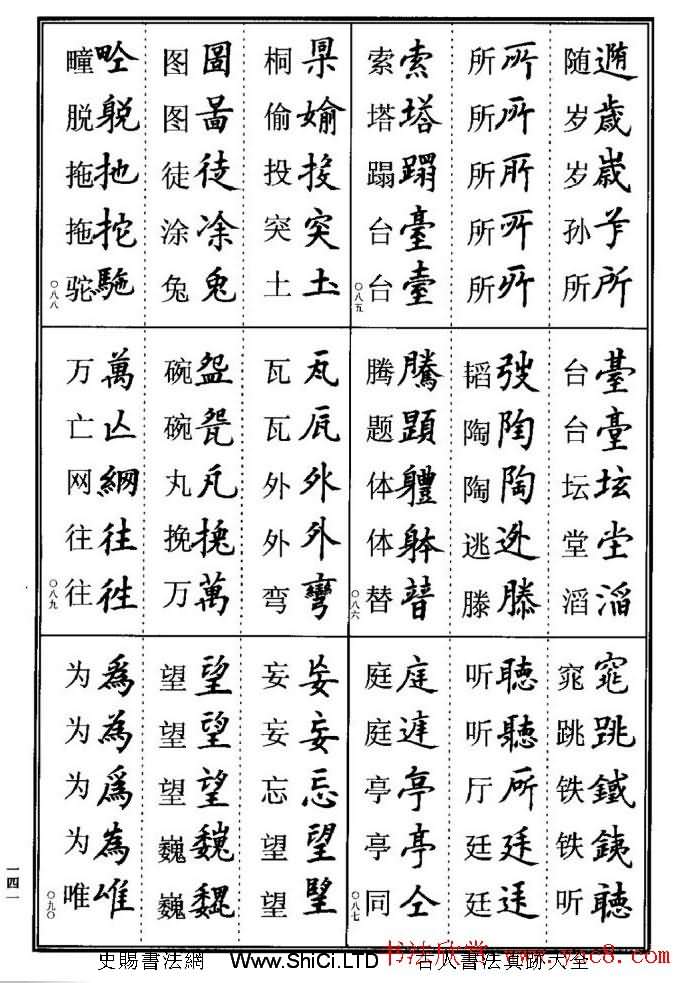 随 岁歳 岁嵗 孙 所所
所所 所所 所所 所所 所所
索索 塔塔 蹋蹋 台臺 台臺
〇八五
台䑓 台臺 坛坛 堂坣 滔滔
韬弢 陶陶 陶陶 逃迯 滕滕
腾騰 题題 体軆 体躰 替朁
〇八六
窕窕 跳跳 铁鐵 铁銕 听聴
听聽 听聽 厅所 廷廷 廷
庭庭 庭 亭亭 亭亭 同仝
〇八七
桐 偷媮 投投 突突 土土
图圖 图啚 徒徒 涂凃 兔兔
疃 脱 拖扡 拖拕 驼駞
〇八八
瓦瓦 瓦瓦 外外 外外 弯彎
碗盌 碗㼝 丸 挽 万萬
万萬 亡亾 网網 往往 往徃
〇八九
妄妄 妄妄 忘忘 望望 望朢
望望 望望 望望 巍巍 巍
为爲 为為 为爲 为為 唯
〇九〇
一四一
史賜書法網 Www.ShiCi.LTD 古人書法真跡大全
书法欣赏 www.yac8.com